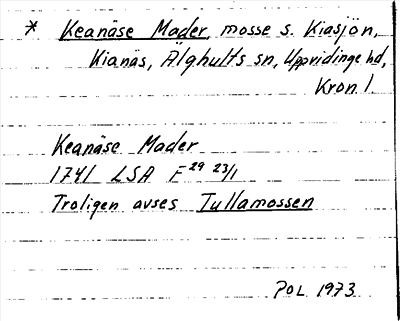 * Keanäse Mader, mosse s. Kiasjön,
Kianäs, Älghults sn, Uppvidinge hd,
Kron. l
Keanäse Mader
1741 LSA F 29 23/1
Troligen avses Tullamossen
POL 1973